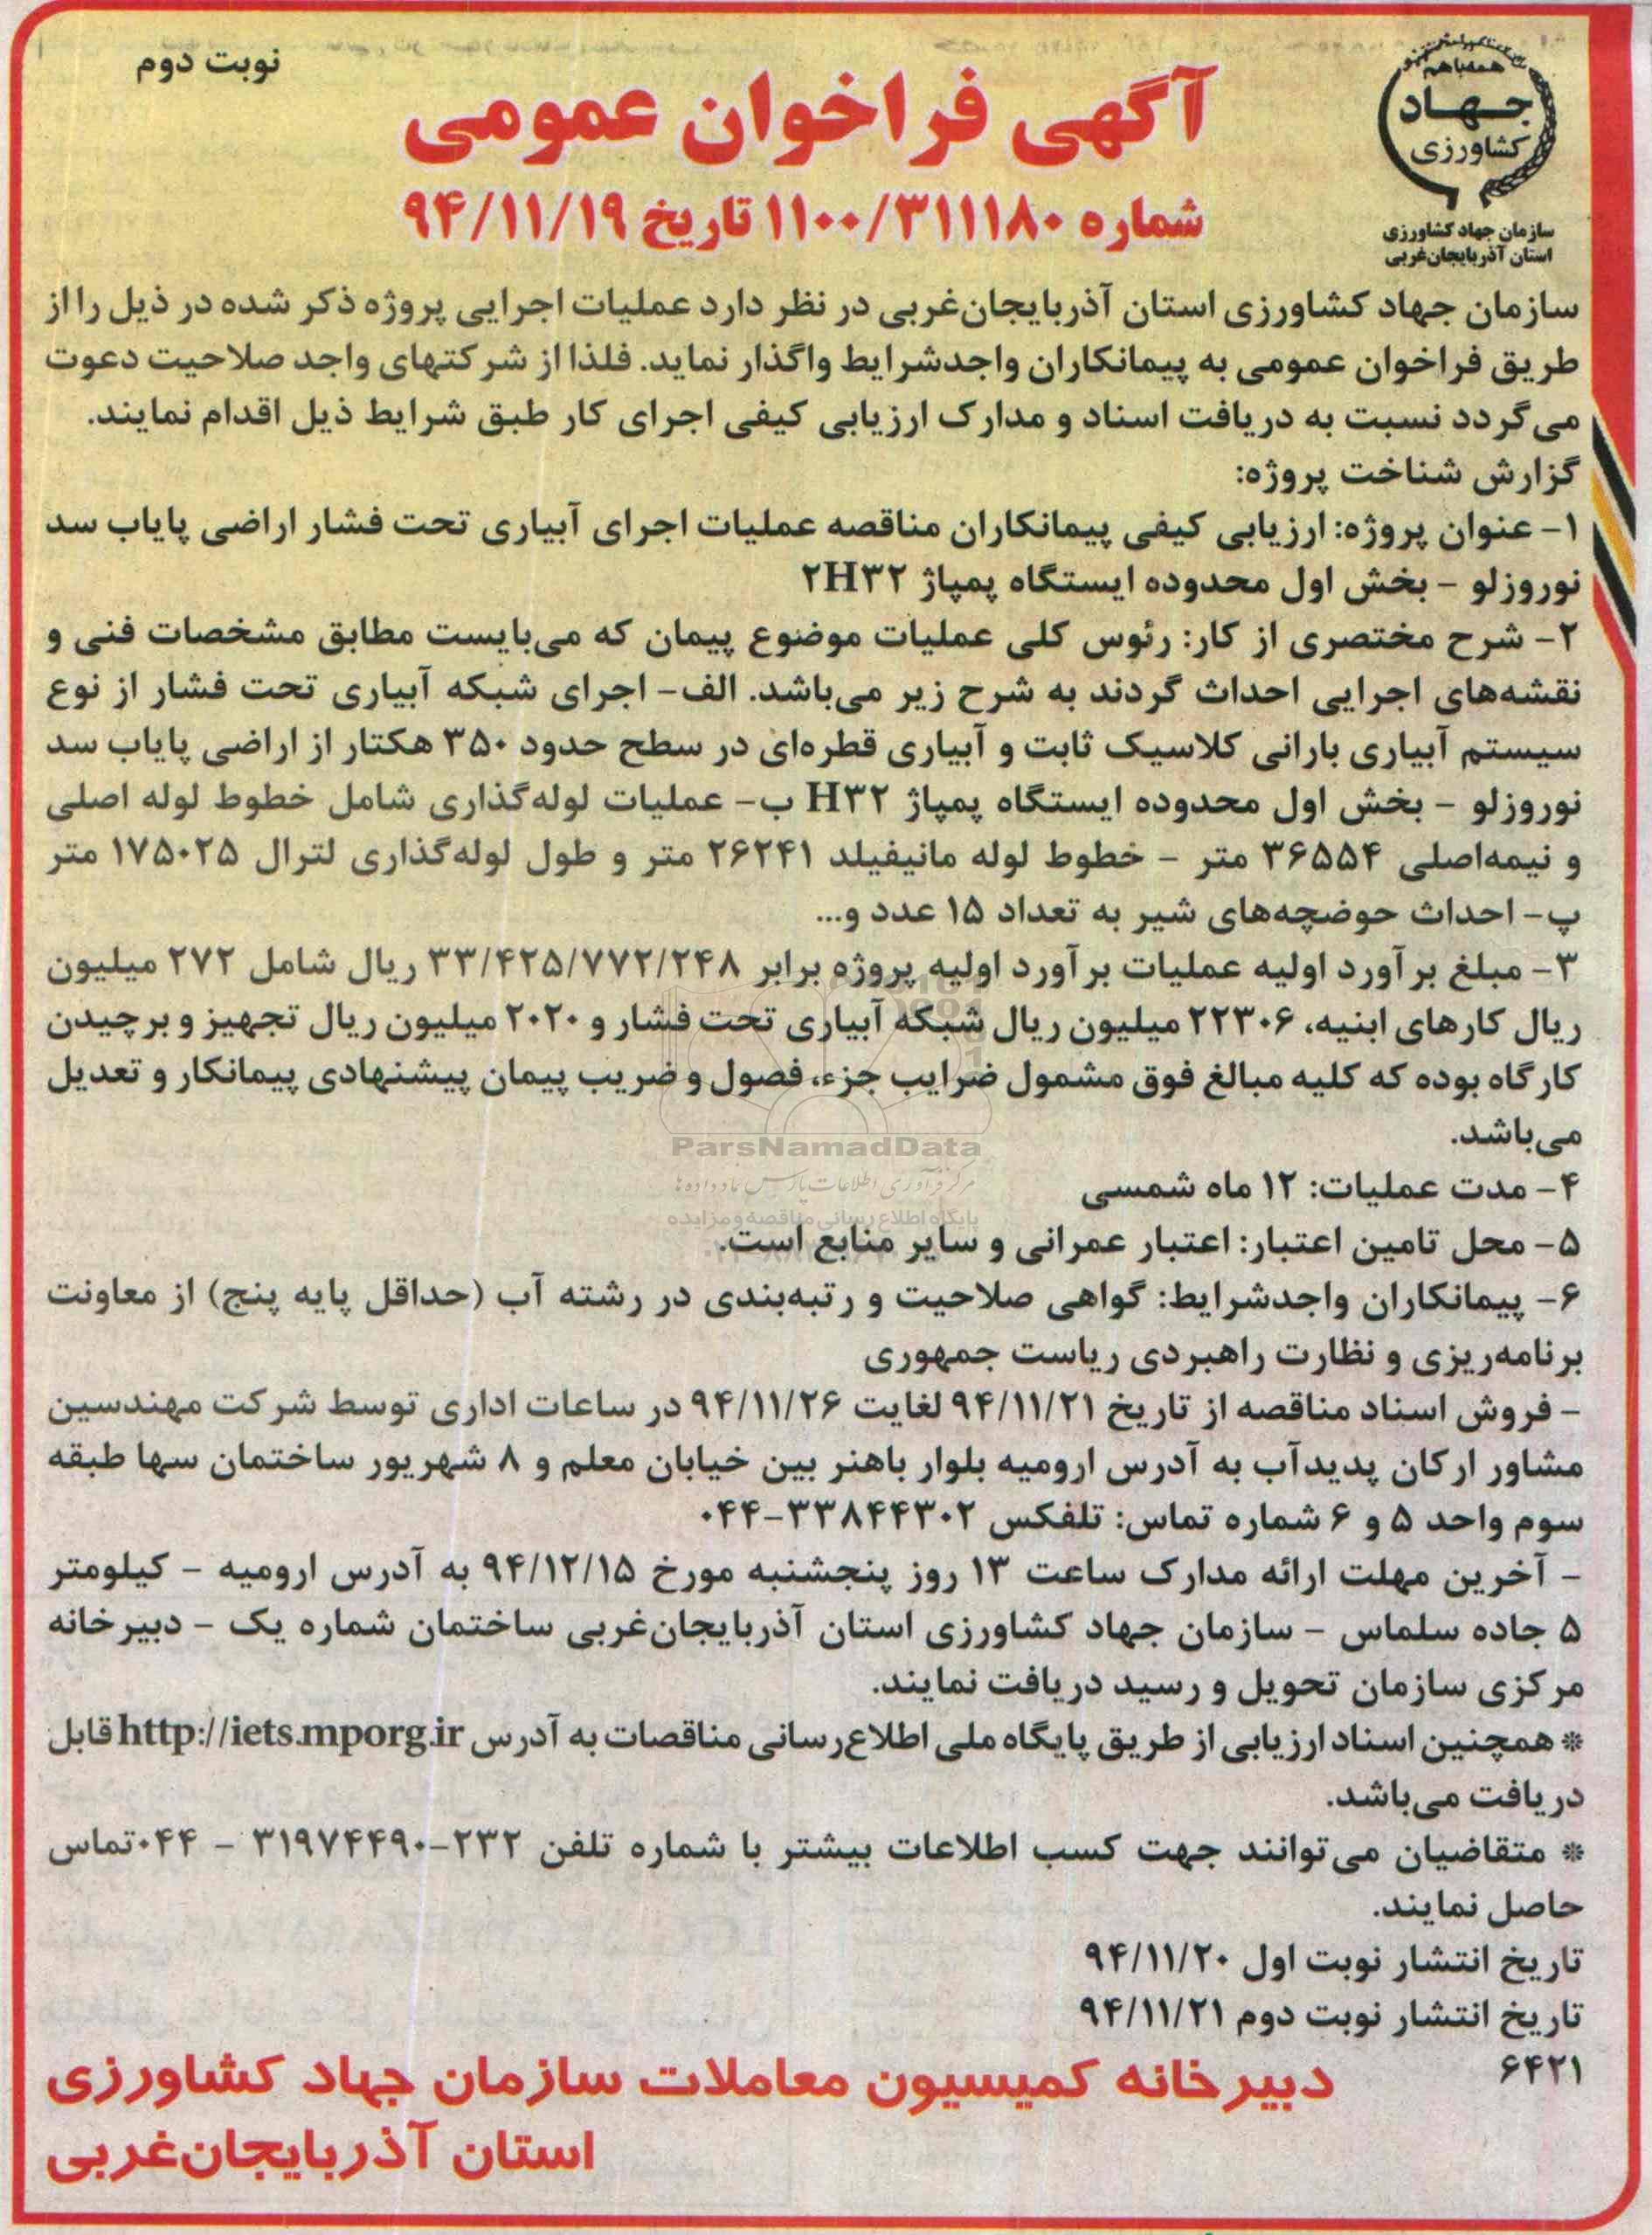 نوبت دوم
همه باهم
جهاد
کشاورزی
سازمان جهاد کشاورزی
استان آذربایجان‌غربی
آگهی فراخوان عمومی
شماره ۱۱۰۰/۳۱۱۱۸۰ تاریخ ۹۴/۱۱/۱۹
سازمان جهاد کشاورزی استان آذربایجان‌غربی در نظر دارد عملیات اجرایی پروژه ذکر شده در ذیل را از
طریق فراخوان عمومی به پیمانکاران واجدشرایط واگذار نماید. فلذا از شرکتهای واجد صلاحیت دعوت
می‌گردد نسبت به دریافت اسناد و مدارک ارزیابی کیفی اجرای کار طبق شرایط ذیل اقدام نمایند.
گزارش شناخت پروژه:
۱- عنوان پروژه: ارزیابی کیفی پیمانکاران مناقصه عملیات اجرای آبیاری تحت فشار اراضی پایاب سد
نوروزلو - بخش اول محدوده ایستگاه پمپاژ ۲H۳۲
۲- شرح مختصری از کار: رئوس کلی عملیات موضوع پیمان که می‌بایست مطابق مشخصات فنی و
نقشه‌های اجرایی احداث گردند به شرح زیر می‌باشد. الف- اجرای شبکه آبیاری تحت فشار از نوع
سیستم آبیاری بارانی کلاسیک ثابت و آبیاری قطره‌ای در سطح حدود ۳۵۰ هکتار از اراضی پایاب سد
نوروزلو - بخش اول محدوده ایستگاه پمپاژ H۳۲ ب- عملیات لوله‌گذاری شامل خطوط لوله اصلی
و نیمه‌اصلی ۳۶۵۵۴ متر - خطوط لوله مانیفیلد ۲۶۲۴۱ متر و طول لوله‌گذاری لترال ۱۷۵۰۲۵ متر
پ- احداث حوضچه‌های شیر به تعداد ۱۵ عدد و...
۳- مبلغ برآورد اولیه عملیات برآورد اولیه پروژه برابر ۳۳/۴۲۵/۷۷۲/۲۴۸ ریال شامل ۲۷۲ میلیون
ریال کارهای ابنیه، ۲۲۳۰۶ میلیون ریال شبکه آبیاری تحت فشار و ۲۰۲۰ میلیون ریال تجهیز و برچیدن
کارگاه بوده که کلیه مبالغ فوق مشمول ضرایب جزء، فصول و ضریب پیمان پیشنهادی پیمانکار و تعدیل
می‌باشد.
ParsNamadData
پایگاه اطلاع رسانی مناقصه و مزایده
۴- مدت عملیات: ۱۲ ماه شمسی
۵- محل تامین اعتبار: اعتبار عمرانی و سایر منابع است.
۶- پیمانکاران واجدشرایط: گواهی صلاحیت و رتبه‌بندی در رشته آب (حداقل پایه پنج) از معاونت
برنامه‌ریزی و نظارت راهبردی ریاست جمهوری
- فروش اسناد مناقصه از تاریخ ۹۴/۱۱/۲۱ لغایت ۹۴/۱۱/۲۶ در ساعات اداری توسط شرکت مهندسین
مشاور ارکان پدیدآب به آدرس ارومیه بلوار باهنر بین خیابان معلم و ۸ شهریور ساختمان سها طبقه
سوم واحد ۵ و ۶ شماره تماس: تلفکس ۳۳۸۴۴۳۰۲-۰۴۴
- آخرین مهلت ارائه مدارک ساعت ۱۳ روز پنجشنبه مورخ ۹۴/۱۲/۱۵ به آدرس ارومیه - کیلومتر
۵ جاده سلماس - سازمان جهاد کشاورزی استان آذربایجان‌غربی ساختمان شماره یک - دبیرخانه
مرکزی سازمان تحویل و رسید دریافت نمایند.
* همچنین اسناد ارزیابی از طریق پایگاه ملی اطلاع‌رسانی مناقصات به آدرس http://iets.mporg.ir قابل
دریافت می‌باشد.
* متقاضیان می‌توانند جهت کسب اطلاعات بیشتر با شماره تلفن ۲۳۲-۳۱۹۷۴۴۹۰ - ۰۴۴ تماس
حاصل نمایند.
تاریخ انتشار نوبت اول ۹۴/۱۱/۲۰
تاریخ انتشار نوبت دوم ۹۴/۱۱/۲۱
۶۴۲۱
دبیرخانه کمیسیون معاملات سازمان جهاد کشاورزی
استان آذربایجان‌غربی